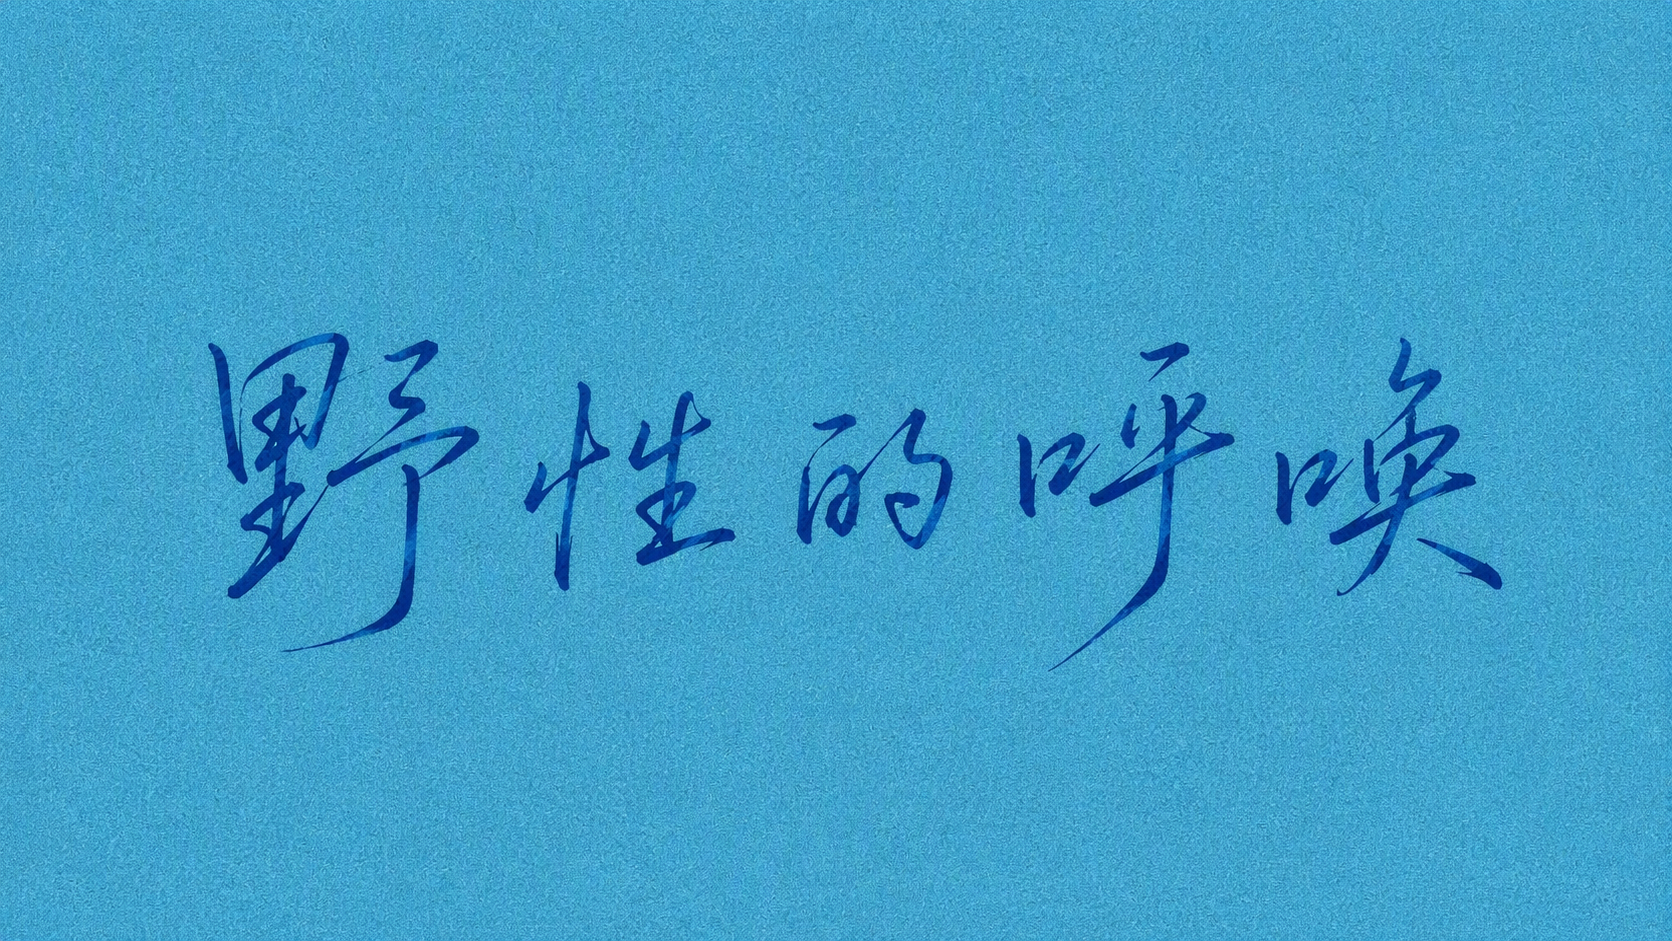 野性的呼唤